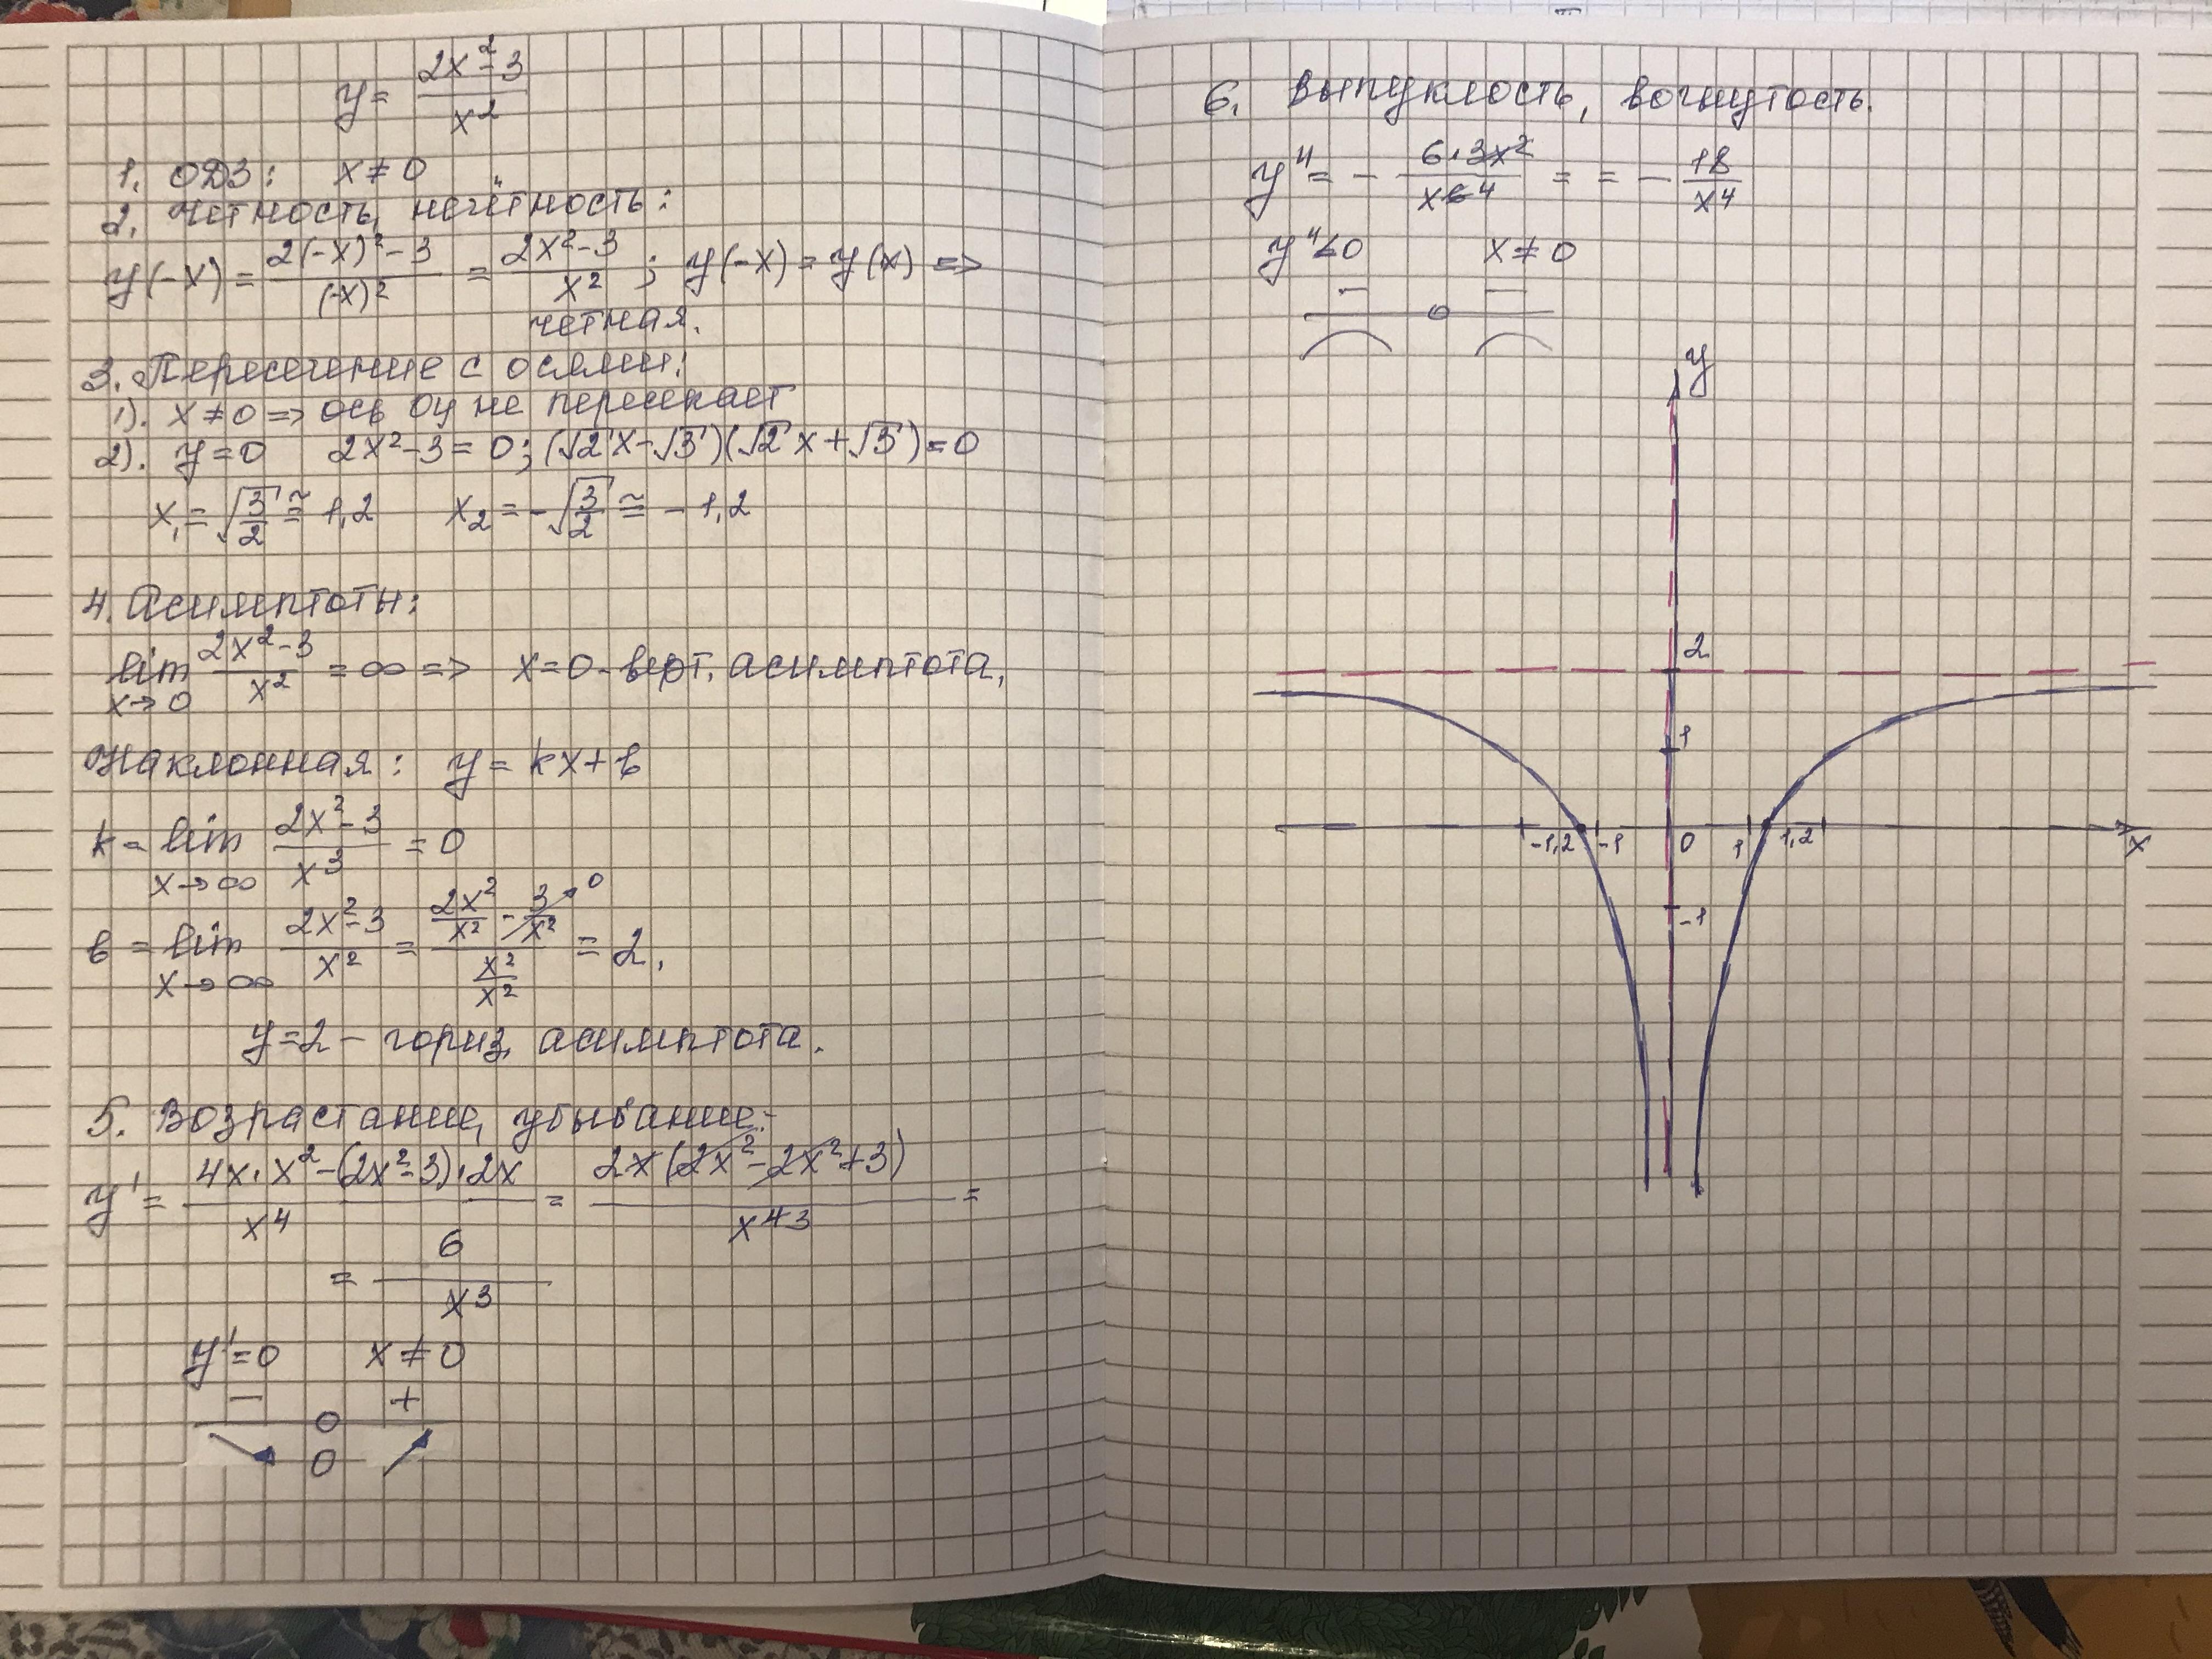 y = (2x² - 3) / x²
1. ОДЗ: x ≠ 0
2. Четность, нечётность:
y(-x) = (2(-x)² - 3) / (-x)² = (2x² - 3) / x² ; y(-x) = y(x) =>
четная.
3. Пересечение с осями:
1). x ≠ 0 => ось Oy не пересекает
2). y = 0 2x² - 3 = 0; (√2 x - √3)(√2 x + √3) = 0
x₁ = √(3/2) ≅ 1,2 x₂ = -√(3/2) ≅ -1,2
4. Асимптоты:
lim x→0 (2x² - 3) / x² = ∞ => x = 0 - верт. асимптота.
Наклонная: y = kx + b
k = lim x→∞ (2x² - 3) / x³ = 0
b = lim x→∞ (2x² - 3) / x² = (2x²/x² - 3/x² → 0) / (x²/x²) = 2.
y = 2 - гориз. асимптота.
5. Возрастание, убывание:
y' = (4x · x² - (2x² - 3) · 2x) / x⁴ = 2x (2x² - 2x² + 3) / x⁴ ³ =
= 6 / x³
y' = 0 x ≠ 0
- +
0
0
6. Выпуклость, вогнутость.
y'' = - (6 · 3x²) / x⁶ ⁴ = = - 18 / x⁴
y'' < 0 x ≠ 0
- -
0
y
2
1
-1,2 -1 0 1 1,2 x
-1